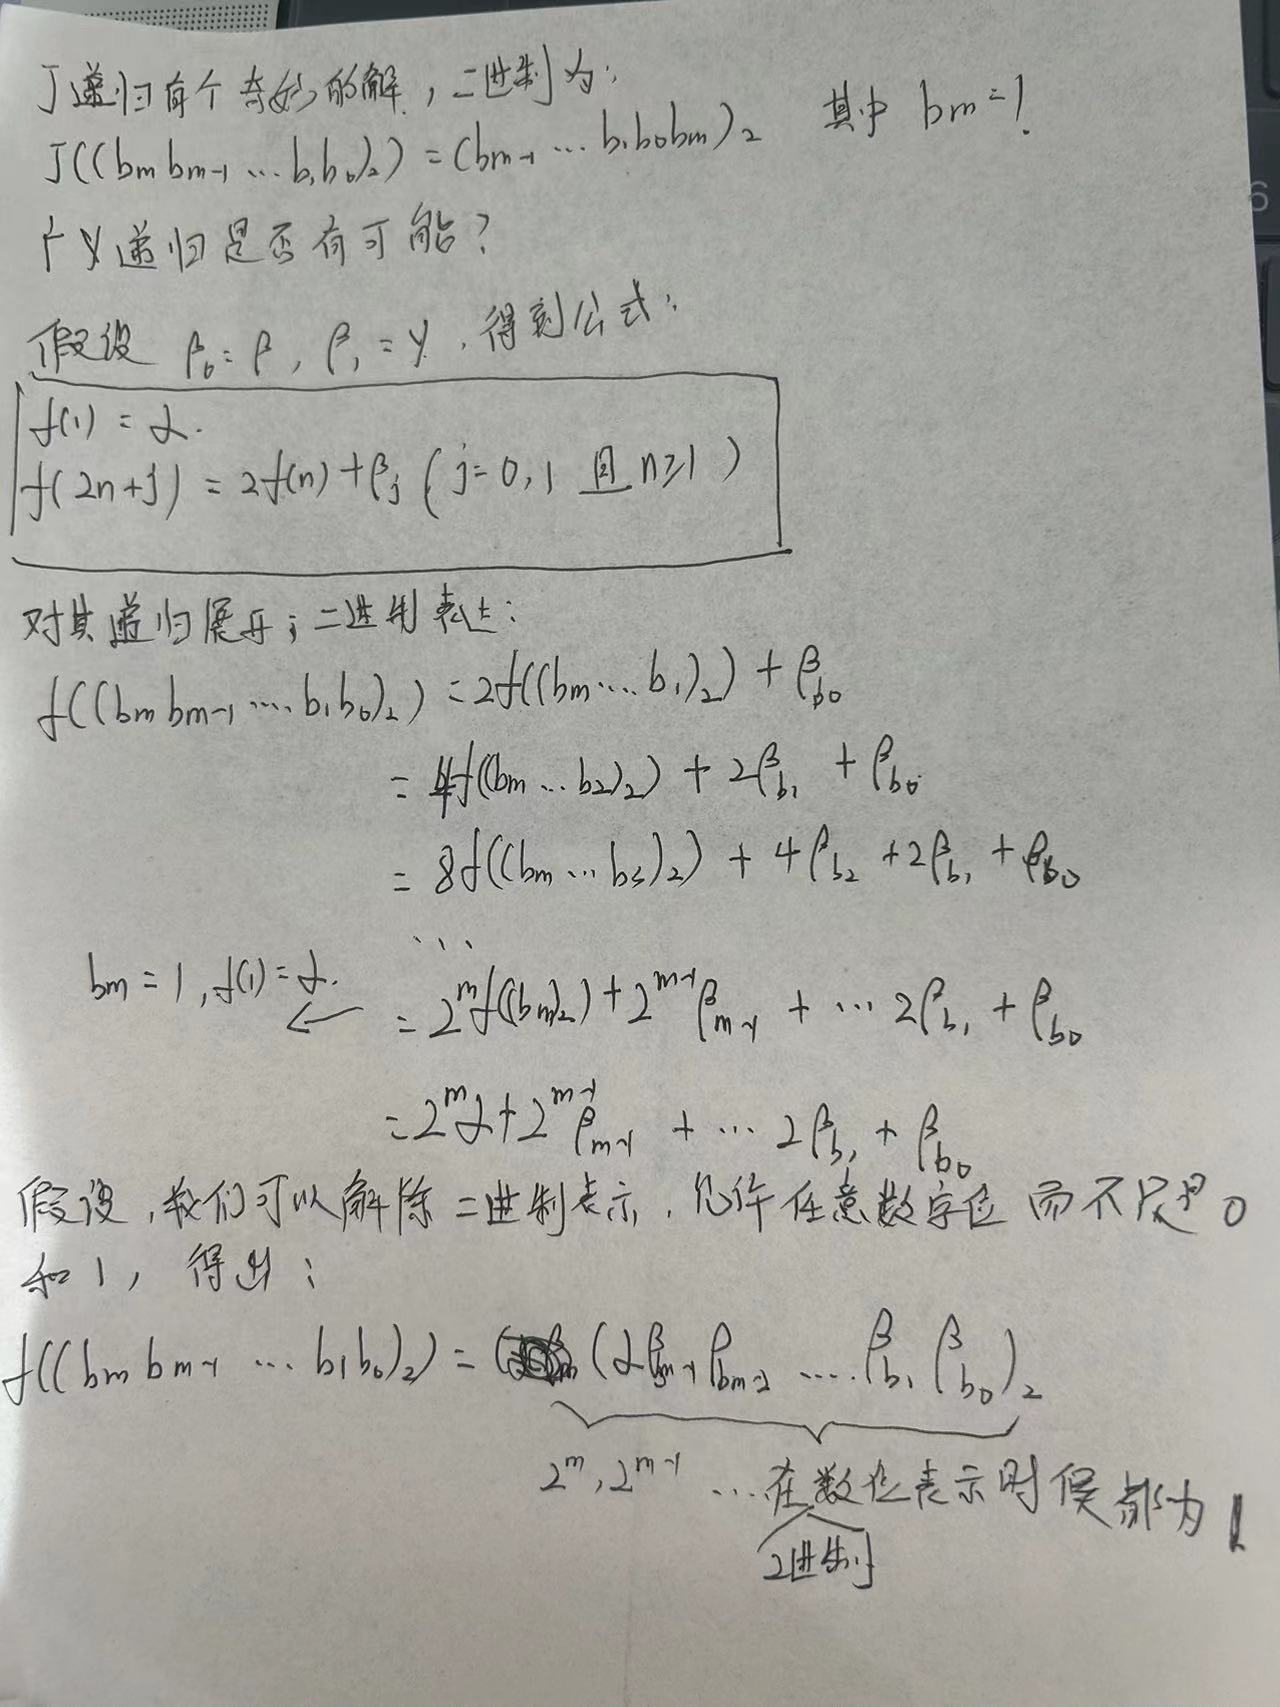 J递归有个奇妙的解,二进制为:
J((bm bm-1 … b1 b0)2) = (bm-1 … b1 b0 bm)2 其中 bm=1.
递归是否有可能?
假设 β0=β, β1=γ, 得到公式:
f(1) = α.
f(2n+j) = 2f(n)+βj (j=0,1 且 n≥1)
对其递归展开;二进制表达:
f((bm bm-1 …. b1 b0)2) = 2f((bm…. b1)2) + βb0
= 4f((bm … b2)2) + 2βb1 + βb0
= 8f((bm … b3)2) + 4βb2 + 2βb1 + βb0
…
bm = 1, f(1) = α. ← = 2^m f((bm)2) + 2^m-1 βm-1 + … 2βb1 + βb0
= 2^m α + 2^m-1 βm-1 + … 2βb1 + βb0
假设,我们可以解除二进制表示,允许任意数字位而不只是0
和1,得出:
f((bm bm-1 … b1 b0)2) = (αβbm-1 βbm-2 …. βb1 βb0)2
2^m, 2^m-1 …在数位表示时候都为1
2进制